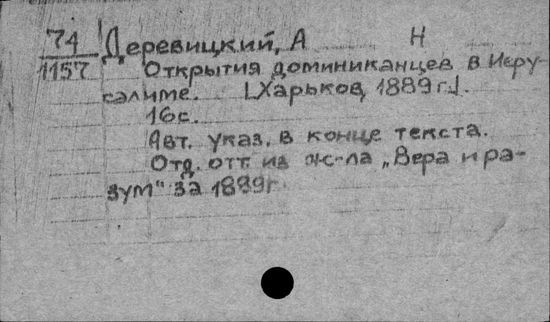 74 Деревицкий, А Н
1157 Открытия доминиканцев в Иеру-
салиме. [Харьков, 1889г.].
16с.
Авт. указ. в конце текста.
Отд. отт. из ж-ла „Вера и ра-
зум" за 1889г.